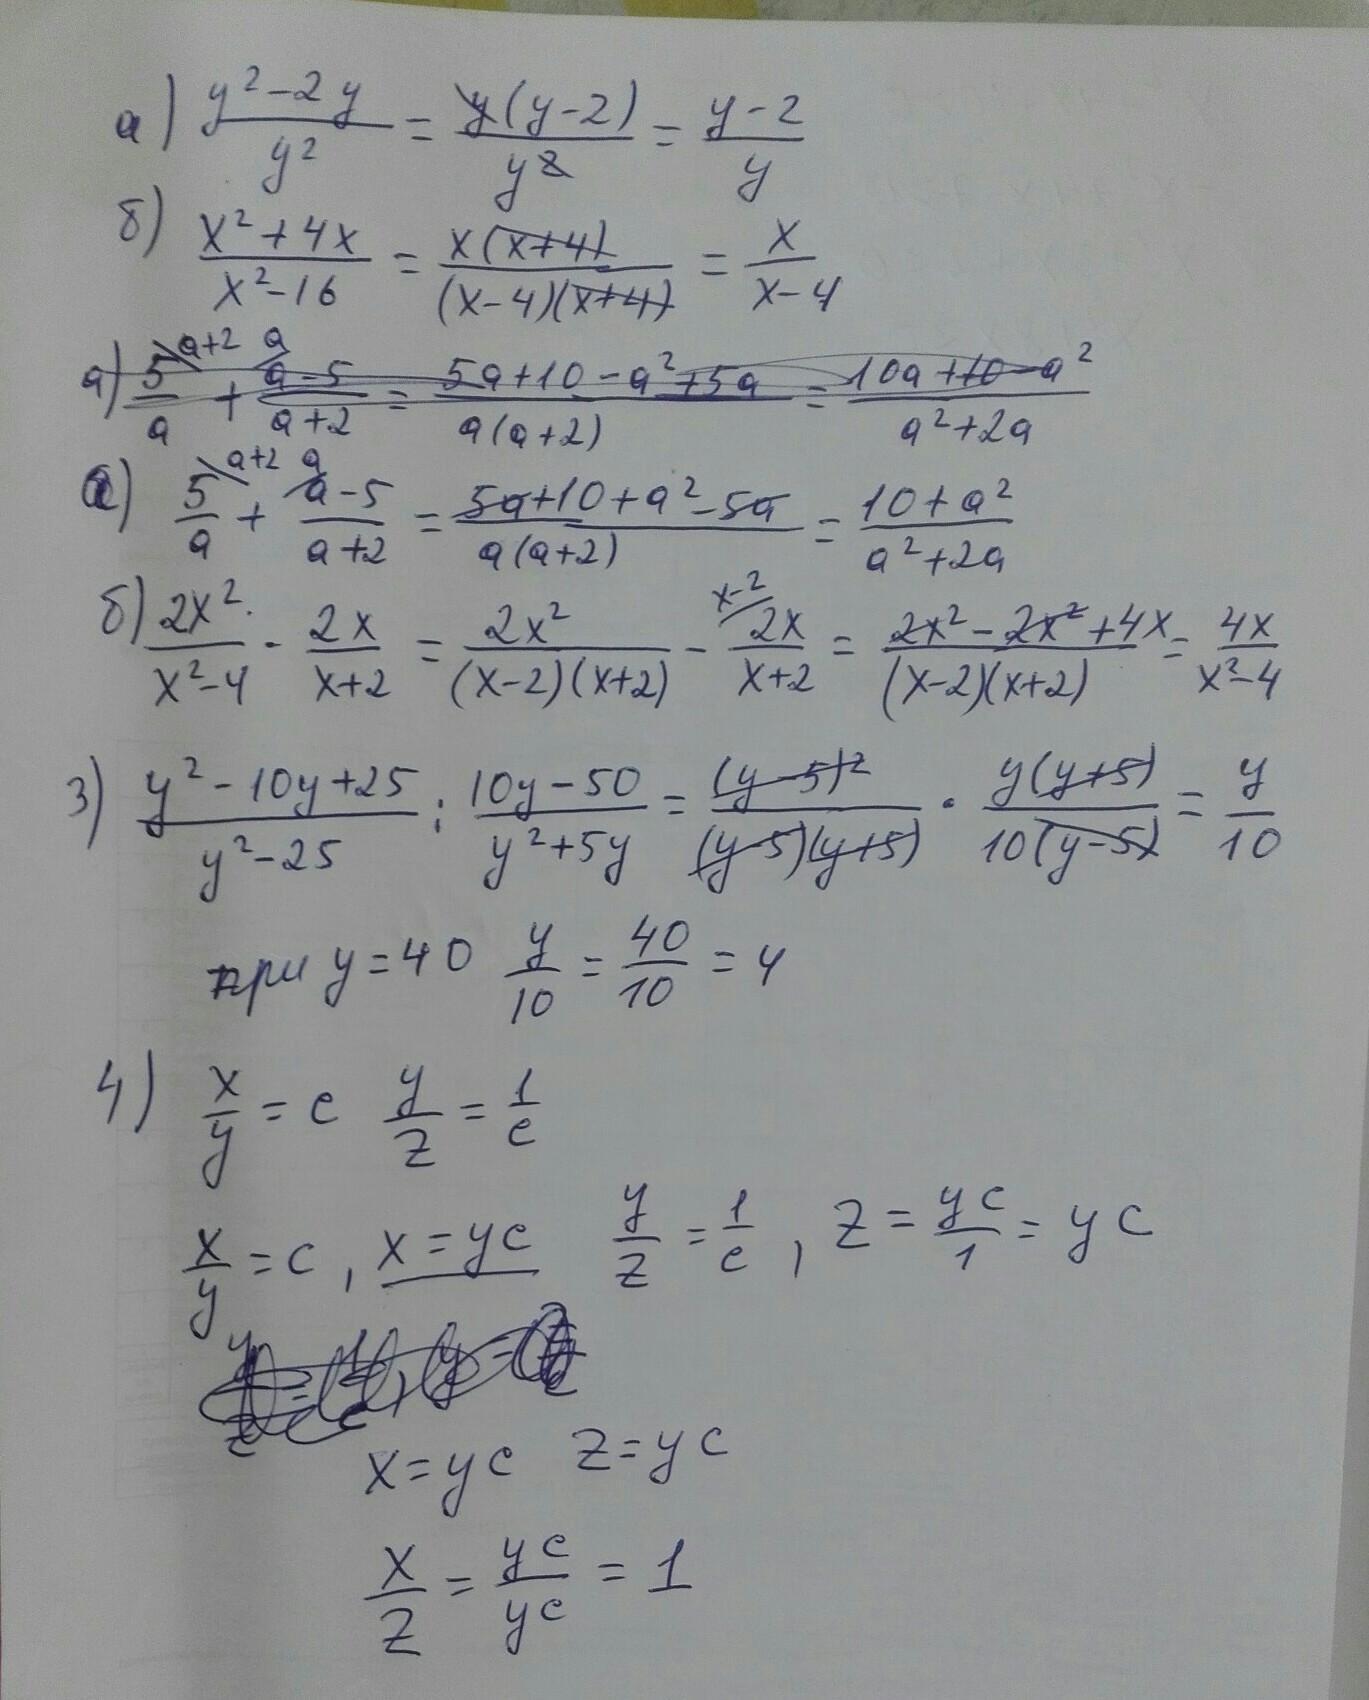 а) (y²-2y)/y² = y(y-2)/y² = (y-2)/y
б) (x²+4x)/(x²-16) = x(x+4)/((x-4)(x+4)) = x/(x-4)
а) 5\a+2/a + a/a-5/(a+2) = (5a+10-a²+5a)/(a(a+2)) = (10a+10-a²)/(a²+2a)
а) 5\a+2/a + a/a-5/(a+2) = (5a+10+a²-5a)/(a(a+2)) = (10+a²)/(a²+2a)
б) 2x²/(x²-4) - 2x/(x+2) = 2x²/((x-2)(x+2)) - x-2/2x/(x+2) = (2x²-2x²+4x)/((x-2)(x+2)) = 4x/(x²-4)
3) (y²-10y+25)/(y²-25) : (10y-50)/(y²+5y) = (y-5)²/((y-5)(y+5)) · y(y+5)/(10(y-5)) = y/10
при y=40 y/10 = 40/10 = 4
4) x/y = c y/z = 1/c
x/y = c, x=yc y/z = 1/c, z = yc/1 = yc
x=yc z=yc
x/z = yc/yc = 1